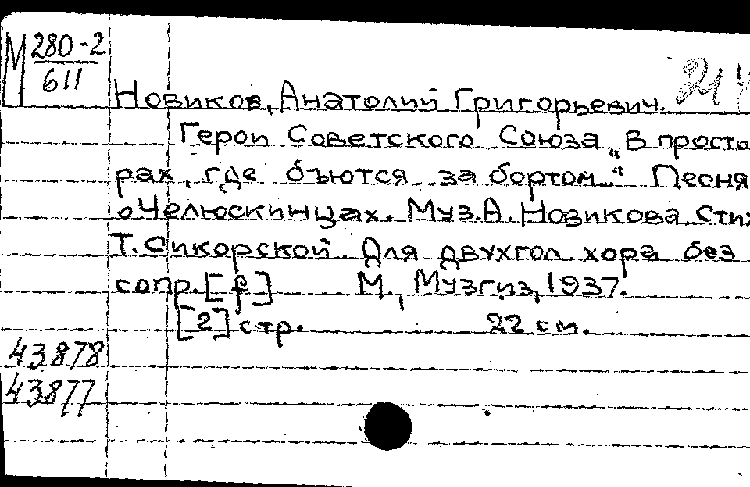 М 280-2
611
Новиков, Анатолий Григорьевич.
Герои Советского Союза „В просто
рах, где бьются за бортом.." Песня
о Челюскинцах. Муз. А. Новикова. Стих
Т. Сикорской. Для двухгол. хора без
сопр. [ф] М., Музгиз, 1937.
[2] стр. 22 см.
43878
43877